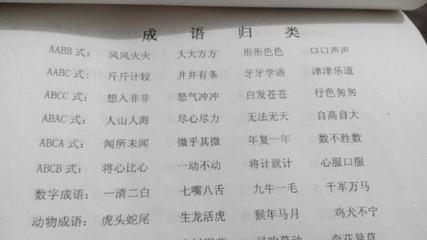 成语归类
AABB式: 风风火火 大大方方 形形色色 口口声声
AABC式: 斤斤计较 井井有条 牙牙学语 津津乐道
ABCC式: 想入非非 怒气冲冲 白发苍苍 行色匆匆
ABAC式: 人山人海 尽心尽力 无法无天 自高自大
ABCA式: 闻所未闻 微乎其微 年复一年 数不胜数
ABCB式: 将心比心 一动不动 将计就计 心服口服
数字成语: 一清二白 七嘴八舌 九牛一毛 千军万马
动物成语: 虎头蛇尾 生龙活虎 猴年马月 鸡犬不宁